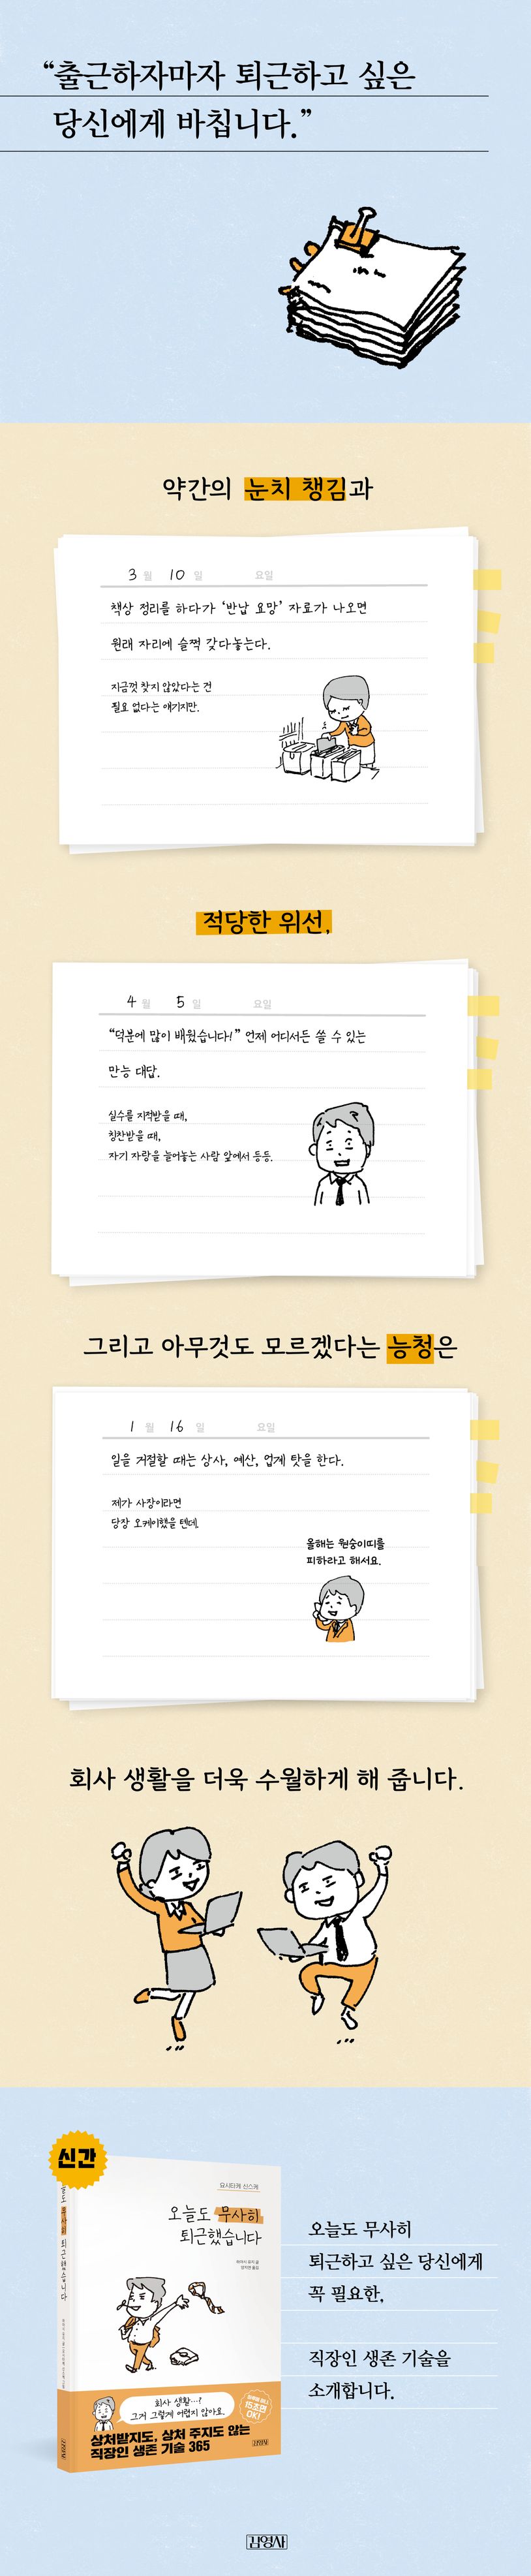 “출근하자마자 퇴근하고 싶은
당신에게 바칩니다.”
약간의 눈치 챙김과
3 월 10 일 요일
책상 정리를 하다가 ‘반납 요망’ 자료가 나오면
원래 자리에 슬쩍 갖다놓는다.
지금껏 찾지 않았다는 건
필요 없다는 얘기지만.
적당한 위선,
4 월 5 일 요일
“덕분에 많이 배웠습니다!” 언제 어디서든 쓸 수 있는
만능 대답.
실수를 지적받을 때,
칭찬받을 때,
자기 자랑을 늘어놓는 사람 앞에서 등등.
그리고 아무것도 모르겠다는 능청은
1 월 16 일 요일
일을 거절할 때는 상사, 예산, 업계 탓을 한다.
제가 사장이라면
당장 오케이했을 텐데.
올해는 원숭이띠를
피하라고 해서요.
회사 생활을 더욱 수월하게 해 줍니다.
신간
요시타케 신스케
오늘도 무사히
퇴근했습니다
회사 생활…?
그거 그렇게 어렵지 않아요.
15초면
OK!
상처받지도, 상처 주지도 않는
직장인 생존 기술 365
김영사
오늘도 무사히
퇴근하고 싶은 당신에게
꼭 필요한,
직장인 생존 기술을
소개합니다.
김영사